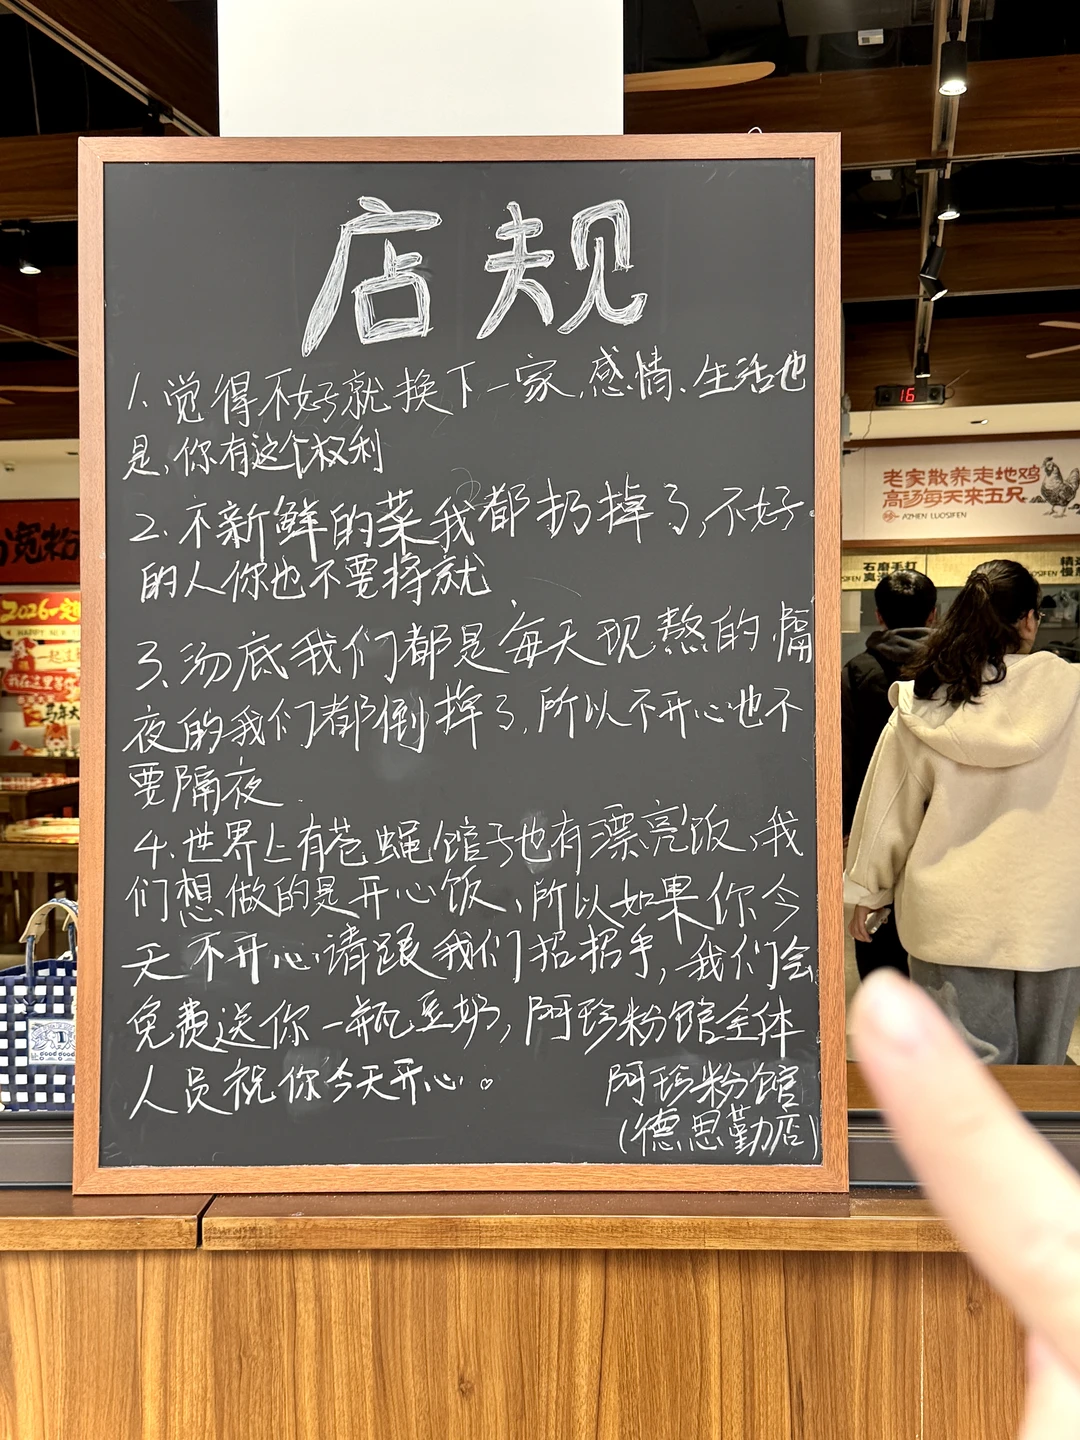 店规
1.觉得不好就换下一家,感情、生活也
是,你有这个权利
2.不新鲜的菜我都扔掉了,不好
的人你也不要将就
3.汤底我们都是每天现熬的,隔
夜的我们都倒掉了,所以不开心也不
要隔夜.
4.世界上有苍蝇馆子也有漂亮饭,我
们想做的是开心饭,所以如果你今
天不开心,请跟我们招招手,我们会
免费送你一瓶豆奶,阿珍粉馆全体
人员祝你今天开心。
阿珍粉馆
(德思勤店)
16
老家散养走地鸡
高汤每天来五只
AZHEN LUOSIFEN
石磨手打
2026
HAPPY
马年大